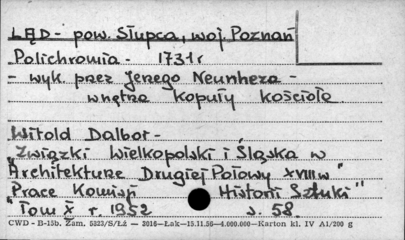 LĄD - pow. Słupca, woj. Poznań
Polichromia - 1731 r
- wyk. przez Jerzego Neunherza -
wnętrze kopuły kościoła
Witold Dalbor -
"Związki Wielkopolski i Śląska w
Architekturze Drugiej Połowy XVIII w"
"Prace Komisji Historii Sztuki"
Tom X r. 1952 s. 58.
CWD - B-15b. Zam. 5323/S/Łż — 3016—Łak—15.11.56—4.000.000—Karton kl. IV A1/200 g